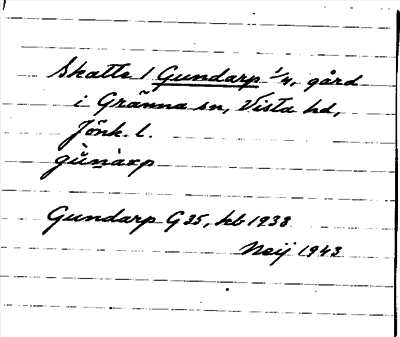 Skatte / Gundarp 1/4, gård
i Gränna sn, Vista hd,
Jönk. l.
gùnarp
Gundarp G35, hb 1938
Neij 1943